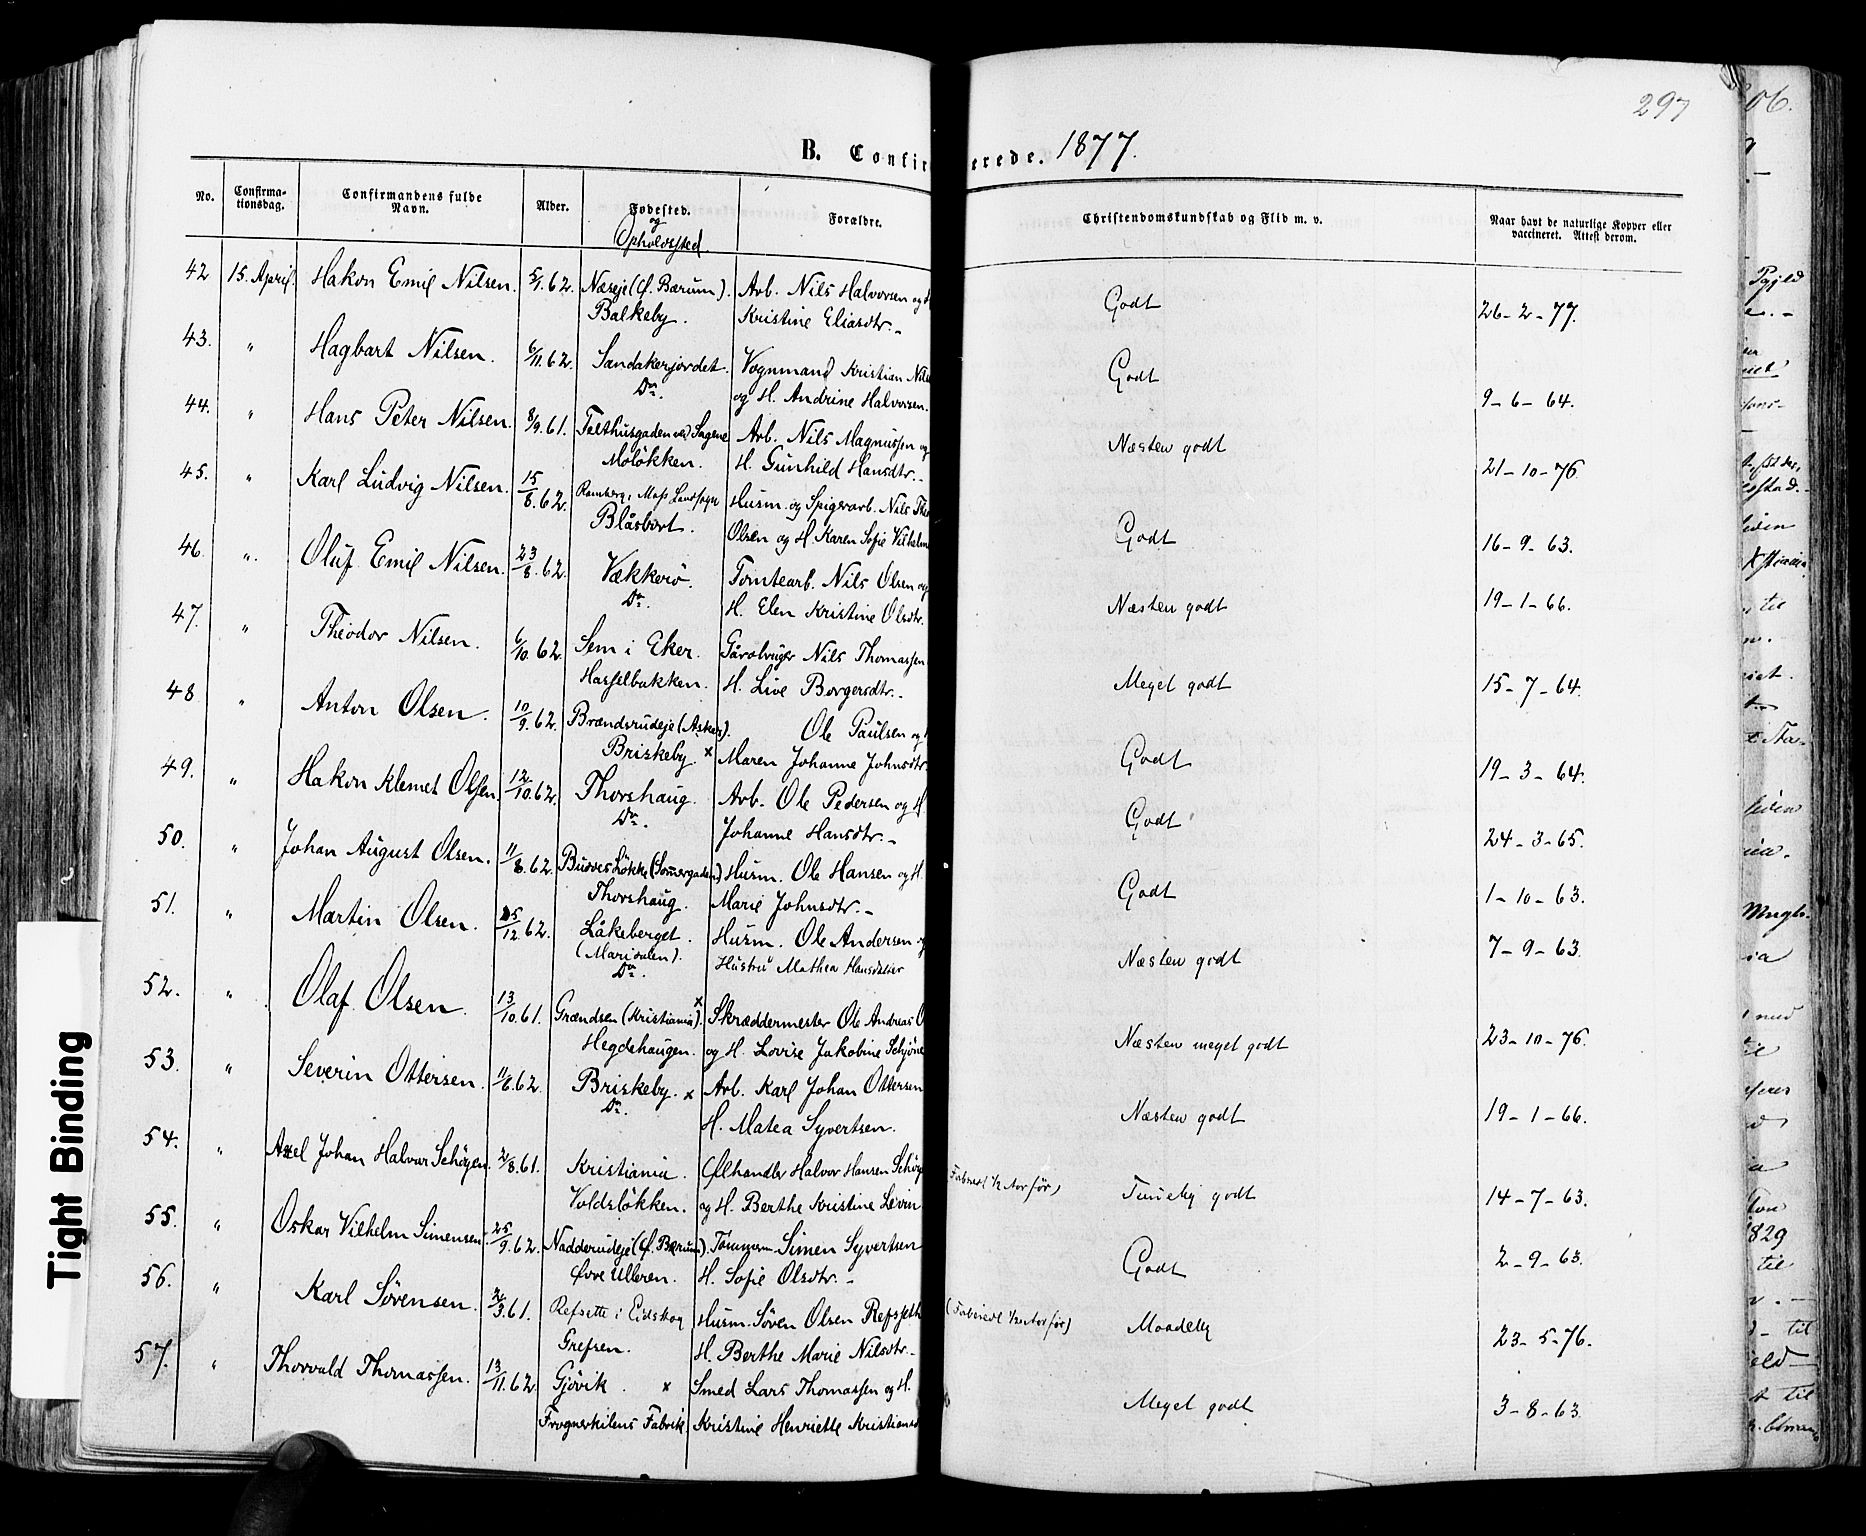 297
B. Confir erede. 1877.
No. Confirma-tionsdag. Confirmandens fulde Navn. Alder. Fødested. og Opholdssted. Forældre. Christendomskundskab og Flid m. v. Naar havt de naturlige Kopper eller vaccineret. Attest derom.
42 15. April. Hakon Emil Nilsen. 5/1.62. Næseje (V. Bærum). Arb. Nils Halvorsen og H
Balkeby. Kristine Eliasdtr.- Godt 26-2-77.
43. " Hagbart Nilsen. 6/11.62. Sandakerjordet. Vognmand Kristian Nils
Do. og H. Andrine Halvorsen. Godt 9-6-64.
44. " Hans Peter Nilsen. 8/9.61. Telthusgaden ved Sagene Arb. Nils Magnussen og
Moløkken. H. Gunhild Hansdtr.- Næsten godt 21-10-76
45. " Karl Ludvig Nilsen. 15/8.62. Ramberg i Moss Landsogn Husm. og Spigerarb. Nils The
Blåsbort. Olsen og H. Karen Sofie Vilhelm Godt 16-9-63.
46. " Oluf Emil Nilsen. 23/8.62. Vækkerø. Tomtearb. Nils Olsen og
Do. H. Elen Kristine Olsdtr. Næsten godt 19-1-66.
47. " Theodor Nilsen. 6/10.62. Sem i Eker. Gårdbruger Nils Thomassen
Hasselbakken. H. Live Borgersdtr.- Meget godt 15-7-64.
48 " Anton Olsen. 10/9.62. Brænderudeje (Asker). Ole Paulsen og
Briskeby. x Maren Johanne Johnsdtr. Godt 19-3-64.
49. " Hakon Klemet Olsen. 12/10.62. Thorshaug. Arb. Ole Pedersen og H.
Do. Johanne Hansdtr.- Godt 24-3-65.
50. " Johan August Olsen. 11/8.62. Busves Løkke (Sommergaden) Husm. Ole Hansen og H.
Thorshaug. Marie Johnsdtr.- Godt 1-10-63.
51. " Martin Olsen. 25/12.62. Låkeberget. Husm. Ole Andersen og
(Maridalen). Hustru Mathea Hansdatter Næsten godt 7-9-63.
Do.
52. " Olaf Olsen. 13/10.61. Grændsen (Kristiania). x Skræddermester Ole Andreas O
Hegdehaugen. og H. Lovise Jakobine Schjøne Næsten meget godt 23-10-76.
53. " Severin Ottersen. 11/6.62. Briskeby. x Arb. Karl Johan Ottersen
Do. H. Matea Syvertsen. Næsten godt 19-1-66.
54. " Axel Johan Halvar Schøyen. 2/8.61. Kristiania. Ølhandler Halvor Hansen Schøy
Voldsløkken. og H. Berthe Kristine Levin Temelig godt 14-7-63.
55. " Oskar Vilhelm Simensen. 25/9.62. Nadderudeje (V. Bærum). Tømmerm. Simen Syvertsen
Øvre Ulleren. H. Sofie Olsdtr.- Godt 2-9-63.
56. " Karl Sørensen. 2/3.61. Refsette i Eidskog Husm. Søren Olsen Refseth
Grefsen. H. Berthe Marie Nilsdtr.- Maadelig 23-5-76.
57. " Thorvald Thomassen. 13/11.62. Gjøvik. x Smed Lars Thomassen og H.
Frognerkilens Fabrik. Kristine Henriette Kristiansd Meget godt 3-8-63.
Tight Binding